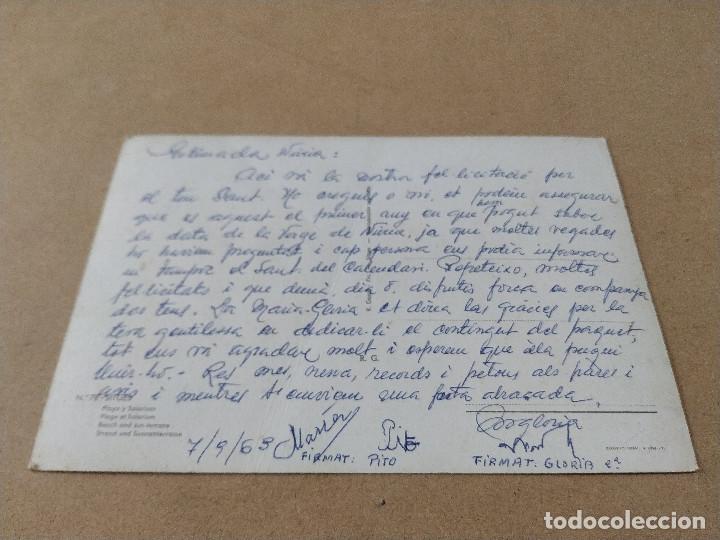 Estimada Núria:
Ací va la nostra fel·licitació per
el teu Sant. Ho creguis o no, et podem assegurar
que es aquest el primer any en que hem pogut saber
la data de la Verge de Núria, ja que moltes vegades
ho havíem preguntat i cap persona ens podia informar
ni tampoc el Sant. del Calendari. Repeteixo, moltes
fel·licitats i que demà, dia 8, disfrutis força en companyia
dos teus. La Maria-Gloria et dóna las gràcies per la
teva gentilessa en dedicar-li el contingut del paquet,
tot ens va agradar molt i esperem que ella pugui
Res mes, nena, records i petons als pares i
avis i mentres t'enviem una forta abraçada,
R. G.
Playa y Solarium
Plage et Solarium
Beach and sun-terrace
Strand und Sonnenterrasse
7/9/63
Pito
FIRMAT: PITO
FIRMAT: GLORIA
todocoleccion
todocoleccion.net